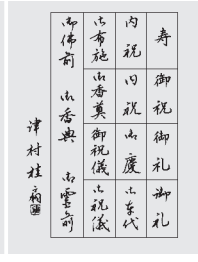 寿 御祝 御礼 御礼
内祝 内祝 御慶 お車代
お布施 御香奠 御祝儀 お祝儀
御佛前 御香典 御霊前
津村桂扇